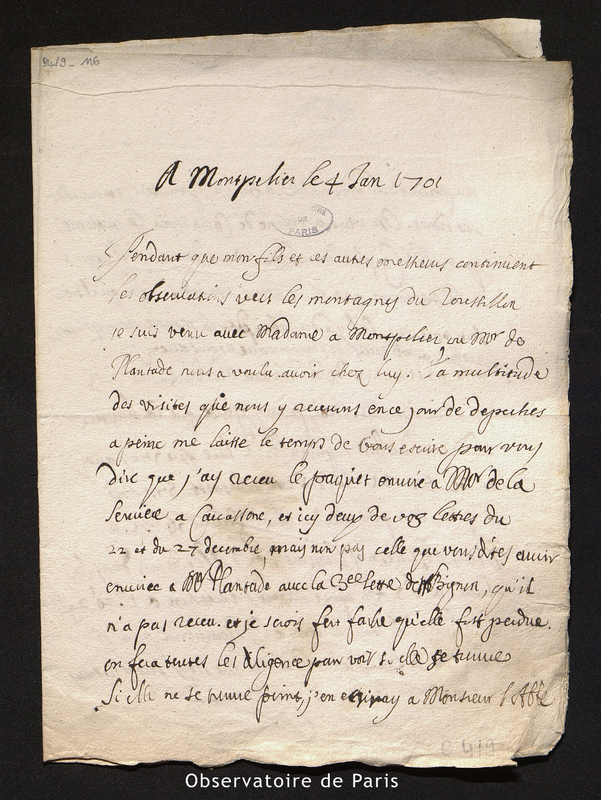 A Montpelier le 4 Jan 1701
Pendant que mon fils et ces autres messieurs continuent
les observations vers les montagnes du Roussillon
je suis venu avec Madame a Montpelier ou Mr de
Plantade nous a voulu avoir chez luy. La multitude
des visites que nous y recevons en ce jour de depeches
a peine me laisse le temps de vous escrire pour vous
dire que j'ay receu le paquet envoié a Mr de la
Serviere a Carcassone, et icy deux de vos lettres du
22 et du 27 decembre, mais non pas celle que vous dites avoir
envoiee a Mr Plantade avec la 3ee lettre de Mr Bignon, qu'il
n'a pas receu. et je serois fort faché qu'elle fust perdue.
on fera toutes les diligence pour voir si elle se trouve
Si elle ne se trouve point, j'en ecriray a Monsieur l'Abbé
PARIS
116
Observatoire de Paris